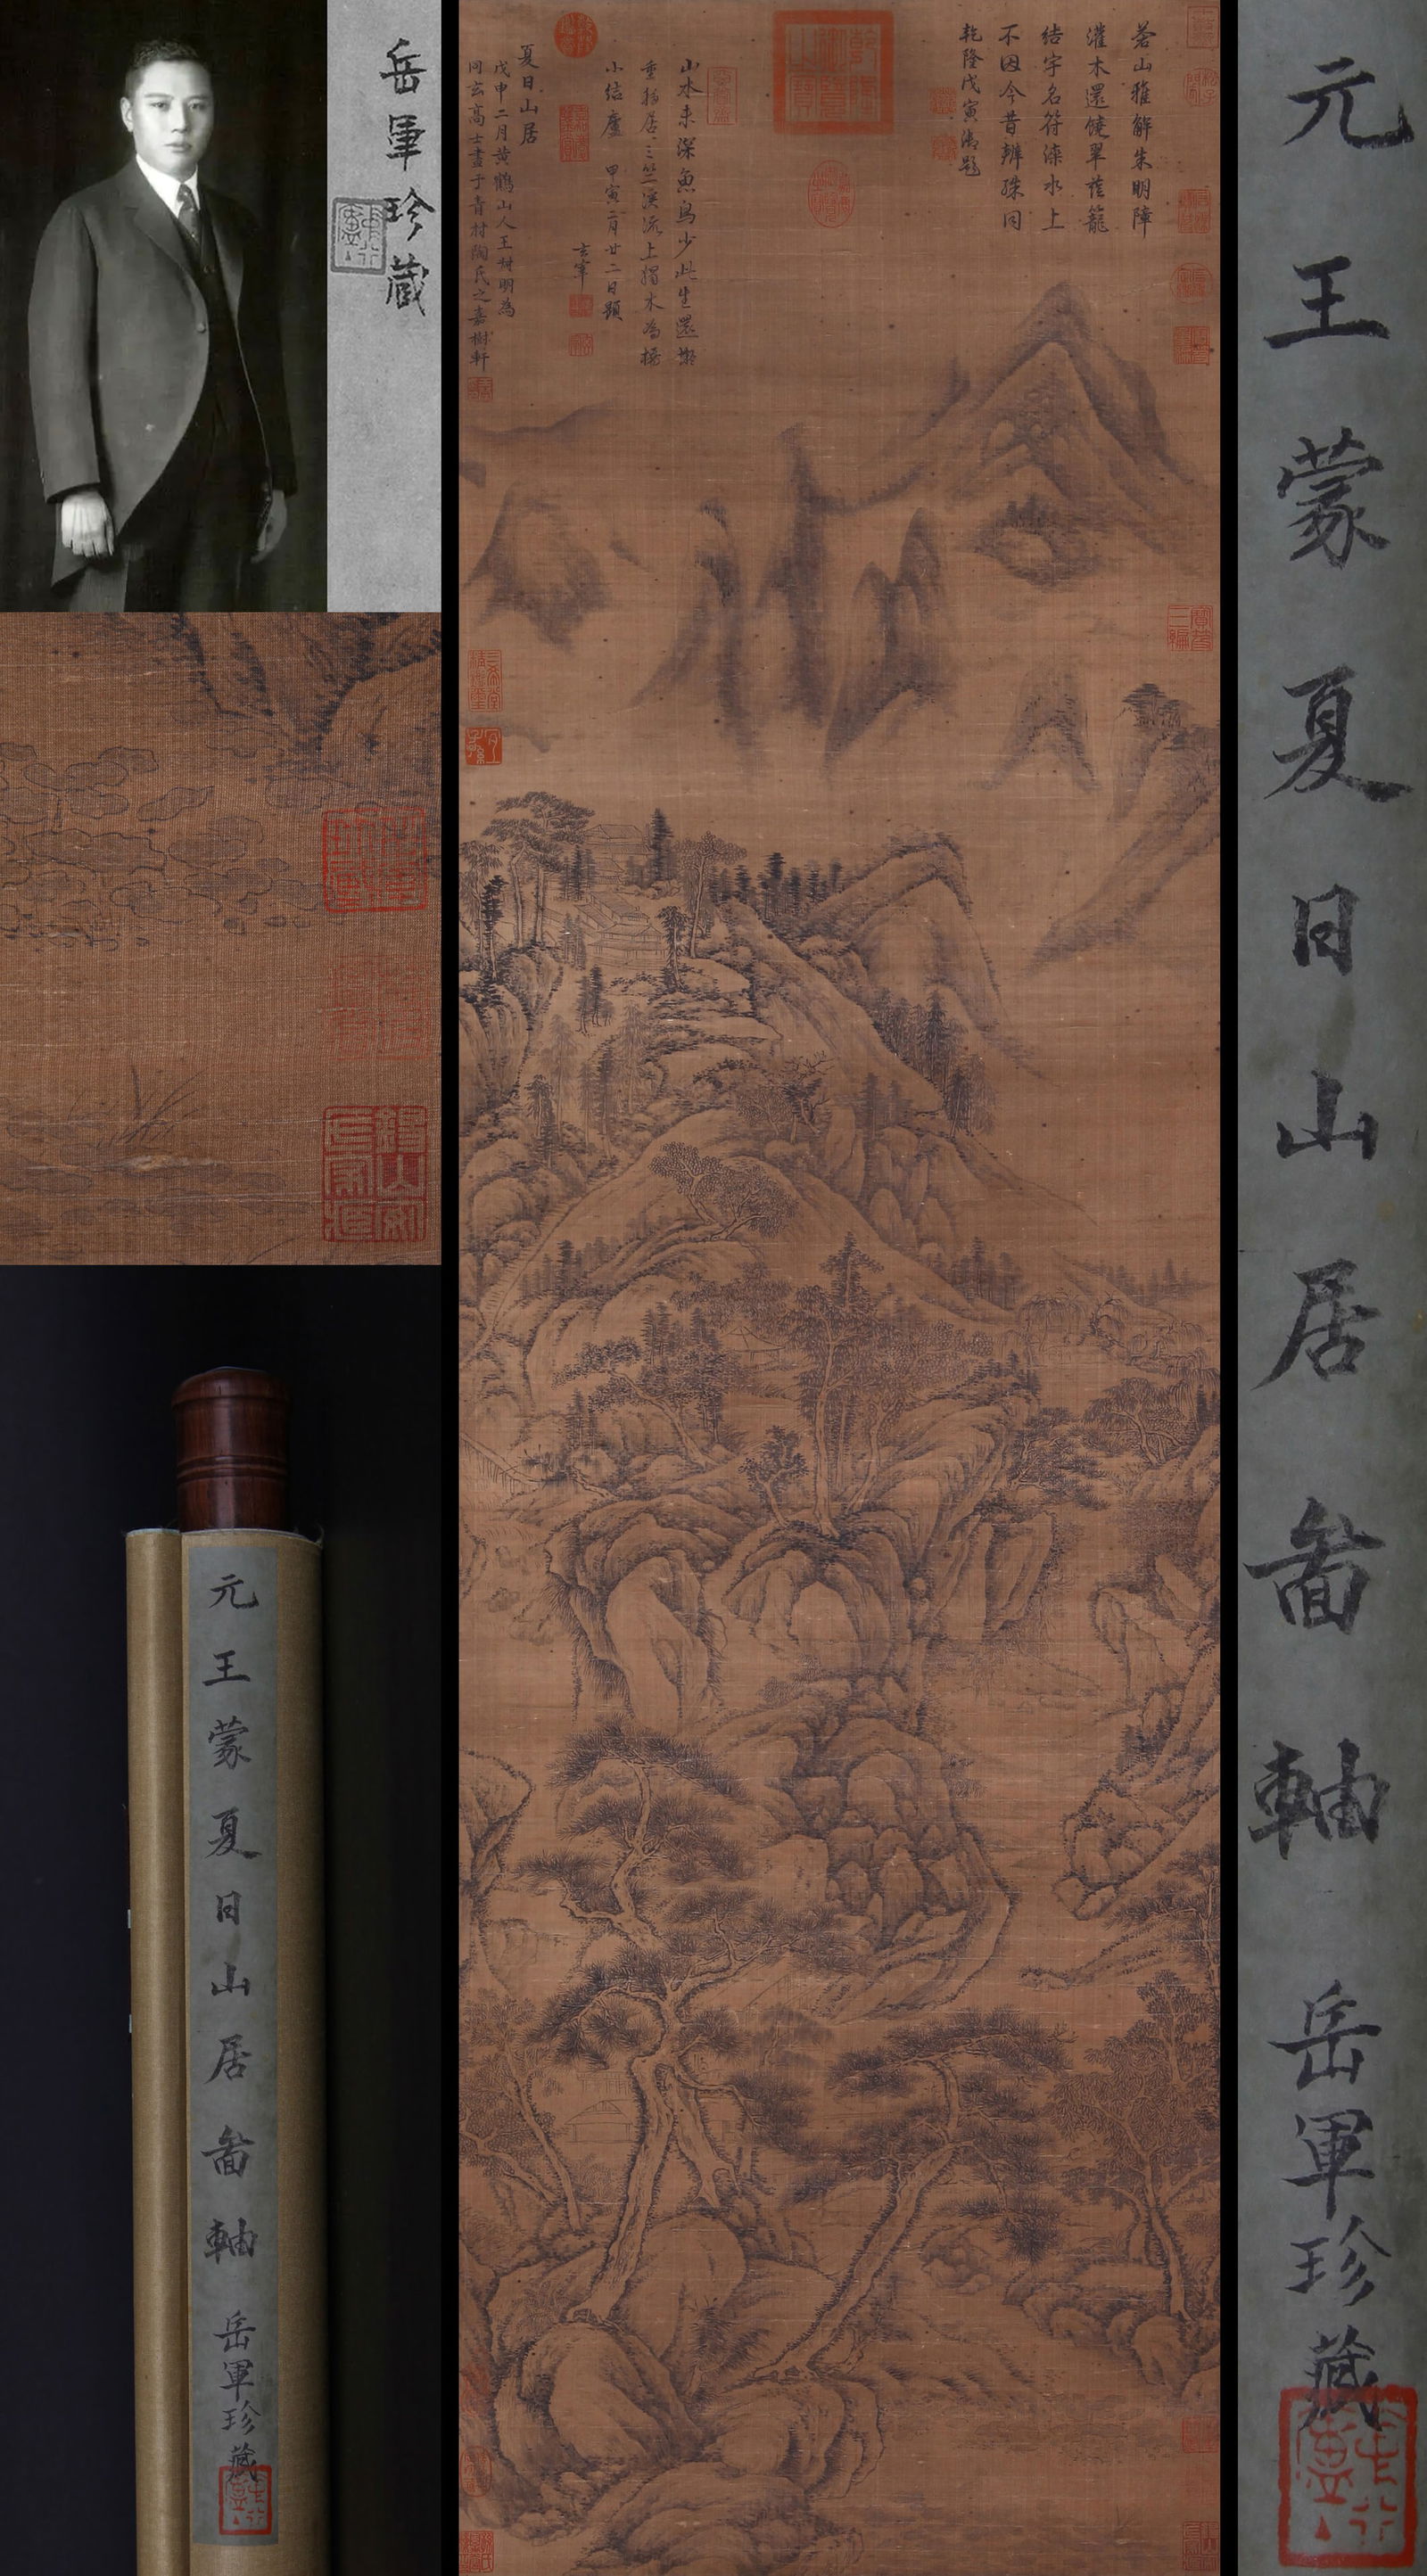 岳軍珍蔵
蒼山雅解朱明障
灌木還饒翠蓰籠
結宇名符滦水上
不因今昔辨殊同
乾隆戊寅御題
山木未深魚鳥少此生還擬
重移居三竺溪流上獨木為橋
小結廬 甲寅二月廿二日題
玄宰
夏日山居
戊申二月黄鶴山人王叔明為
同玄高士畫于青村陶氏之嘉樹軒
元王蒙夏日山居啚軸 岳軍珍藏
元王蒙夏日山居啚軸 岳軍珍藏